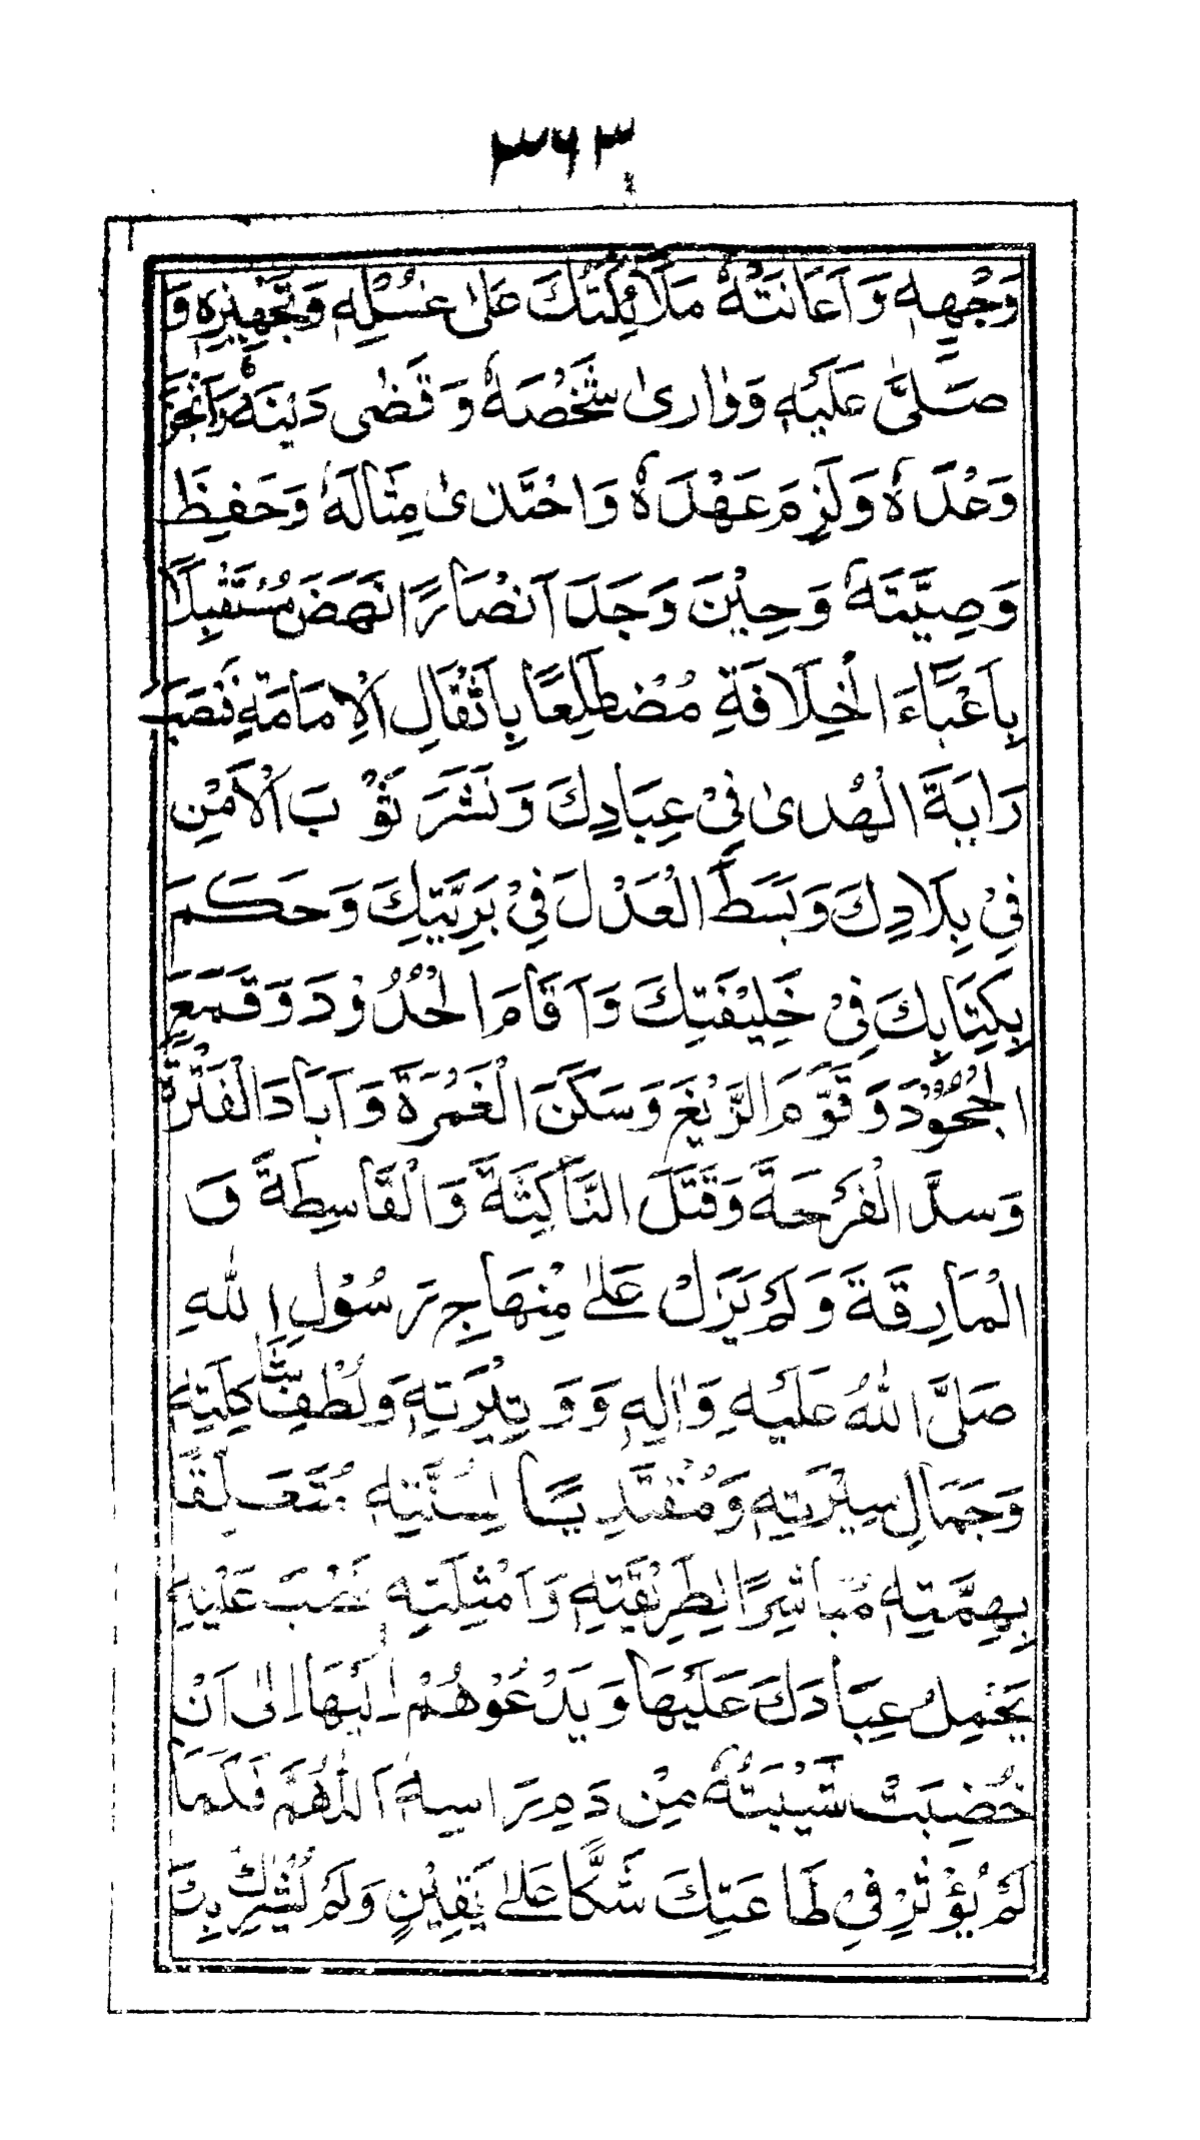 ۳۶۳
وَجْهِهٖ وَاَعَانَتْهُ مَلَآئِكَتُكَ عَلٰى غُسْلِهٖ وَتَجْهِيْزِهٖ وَ
صَلّٰى عَلَيْهِ وَوَارٰى شَخْصَهٗ وَقَضٰى دَيْنَهٗ وَاَنْجَزَ
وَعْدَهٗ وَلَزِمَ عَهْدَهٗ وَاحْتَذٰى مِثَالَهٗ وَحَفِظَ
وَصِيَّتَهٗ وَحِيْنَ وَجَدَ اَنْصَارًا نَهَضَ مُسْتَقْبِلًا
بِاَعْبَاءَ الْخِلَافَةِ مُضْطَلِعًا بِاَثْقَالِ الْاِمَامَةِ فَنَصَبَ
رَايَةَ الْهُدٰى فِيْ عِبَادِكَ وَنَشَرَ ثَوْبَ الْاَمْنِ
فِيْ بِلَادِكَ وَبَسَطَ الْعَدْلَ فِيْ بَرِيَّتِكَ وَحَكَمَ
بِكِتَابِكَ فِيْ خَلِيْفَتِكَ وَاَقَامَ الْحُدُوْدَ وَقَمَعَ
الْجُحُوْدَ وَقَوَّمَ الزَّيْغَ وَسَكَنَ الْغَمْرَةَ وَاَبَادَ الْفَتْرَةَ
وَسَدَّ الْفَرْجَةَ وَقَتَلَ النَّاكِثَةَ وَالْقَاسِطَةَ وَ
الْمَارِقَةَ وَلَمْ يَزَلْ عَلٰى مِنْهَاجِ رَسُوْلِ اللهِ
صَلَّى اللهُ عَلَيْهِ وَاٰلِهٖ وَوَتِيْرَتِهٖ وَلُطْفِ شَاكِلَتِهٖ
وَجَمَالِ سِيْرَتِهٖ وَمُقْتَدِيًا لِسُنَّتِهٖ مُتَعَلِّقًا
بِهِمَّتِهٖ مُبَاشِرًا لِطَرِيْقَتِهٖ وَاَمْثِلَتِهٖ نَصْبَ عَلَيْهِ
يَحْمِلُ عِبَادَكَ عَلَيْهَا وَيَدْعُوْهُمْ اِلَيْهَا اِلٰى اَنْ
خُضِبَتْ شَيْبَتُهٗ مِنْ دَمِ رَاسِهٖ اَللّٰهُمَّ فَكَمَا
لَمْ يُؤْثِرْ فِيْ طَاعَتِكَ شَكًّا عَلٰى يَقِيْنٍ وَلَمْ يُشْرِكْ بِكَ